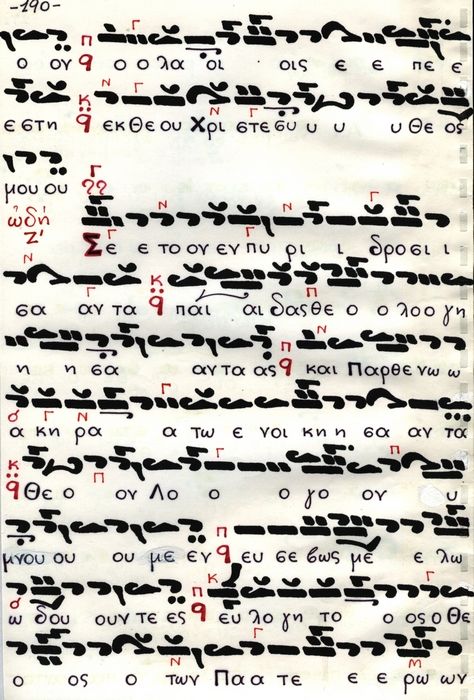 -190-
ο ου π q ο ο λα οι οις ε ε πε ε
ε στη κ q εκ Θε ου Χρι στε ευ υ υ υ Θε ος
μου ου Γ
ᾠδή Ζ' Σε ε το ον εν πυ ρι ι δροσι ι
σα αν τα κ q παι αι δας θε ο ο λο ο γη
η η σα αν τα ας π q και Παρθε νω ω
α κη ρα α τω ε νοι κη η σα αν τα
κ q Θε ο ον Λο ο ο γο ον υ
μνου ου ου με εν π q ευ σε βως με ε λω
ω δου ουν τε ες π q ευ λο γη το ο ος ο Θε
ο ος ο των Πα α τε ε ε ρω ων